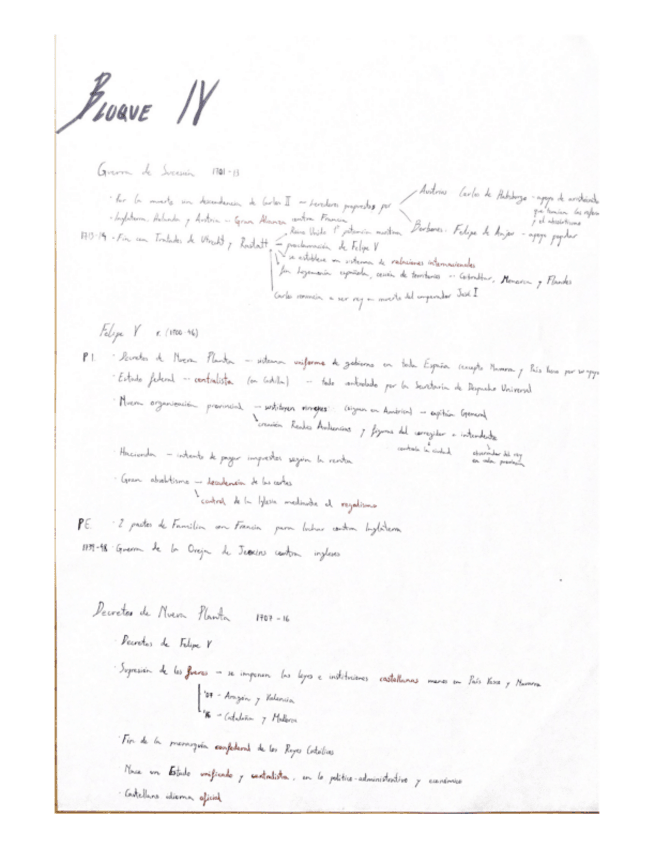 BLOQUE IV
Guerra de Sucesión 1701-13
· Por la muerte sin descendencia de Carlos II — herederos propuestos por
Austrias Carlos de Habsburgo - apoyo de
y el absolutismo
Borbones. Felipe de Anjou - apoyo popular
· Inglaterra, Holanda y Austria — Gran Alianza contra Francia
1713-14 · Fin con Tratados de Utrecht y Rastatt
Reino Unido 1ª potencia marítima
proclamación de Felipe V
se establece un sistema de relaciones internacionales
fin hegemonía española, cesión de territorios — Gibraltar, Menorca y Flandes
Carlos renuncia a ser rey en muerte del emperador José I
Felipe V r. (1700-46)
P I. · Decretos de Nueva Planta — sistema uniforme de gobierno en toda España excepto Navarra y País Vasco por su apoyo
· Estado federal — centralista (en Castilla) — todo controlado por la Secretaría de Despacho Universal
· Nueva organización provincial — sustituyen virreyes (siguen en América) — capitán General
creación Reales Audiencias y figuras del corregidor e intendente
controla la ciudad
observador del rey
en cada provincia
· Hacienda — intento de pagar impuestos según la renta
· Gran absolutismo — decadencia de las cortes
control de la Iglesia mediante el regalismo
P E. · 2 pactos de Familia con Francia para luchar contra Inglaterra
Guerra de la Oreja de Jenkins contra ingleses
Decretos de Nueva Planta 1707-16
· Decretos de Felipe V
· Supresión de los fueros — se imponen las leyes e instituciones castellanas menos en País Vasco y Navarra
'07 - Aragón y Valencia
'16 - Cataluña y Mallorca
· Fin de la monarquía confederal de los Reyes Católicos
Nace un Estado unificado y centralista, en lo político-administrativo y económico
· Castellano idioma oficial